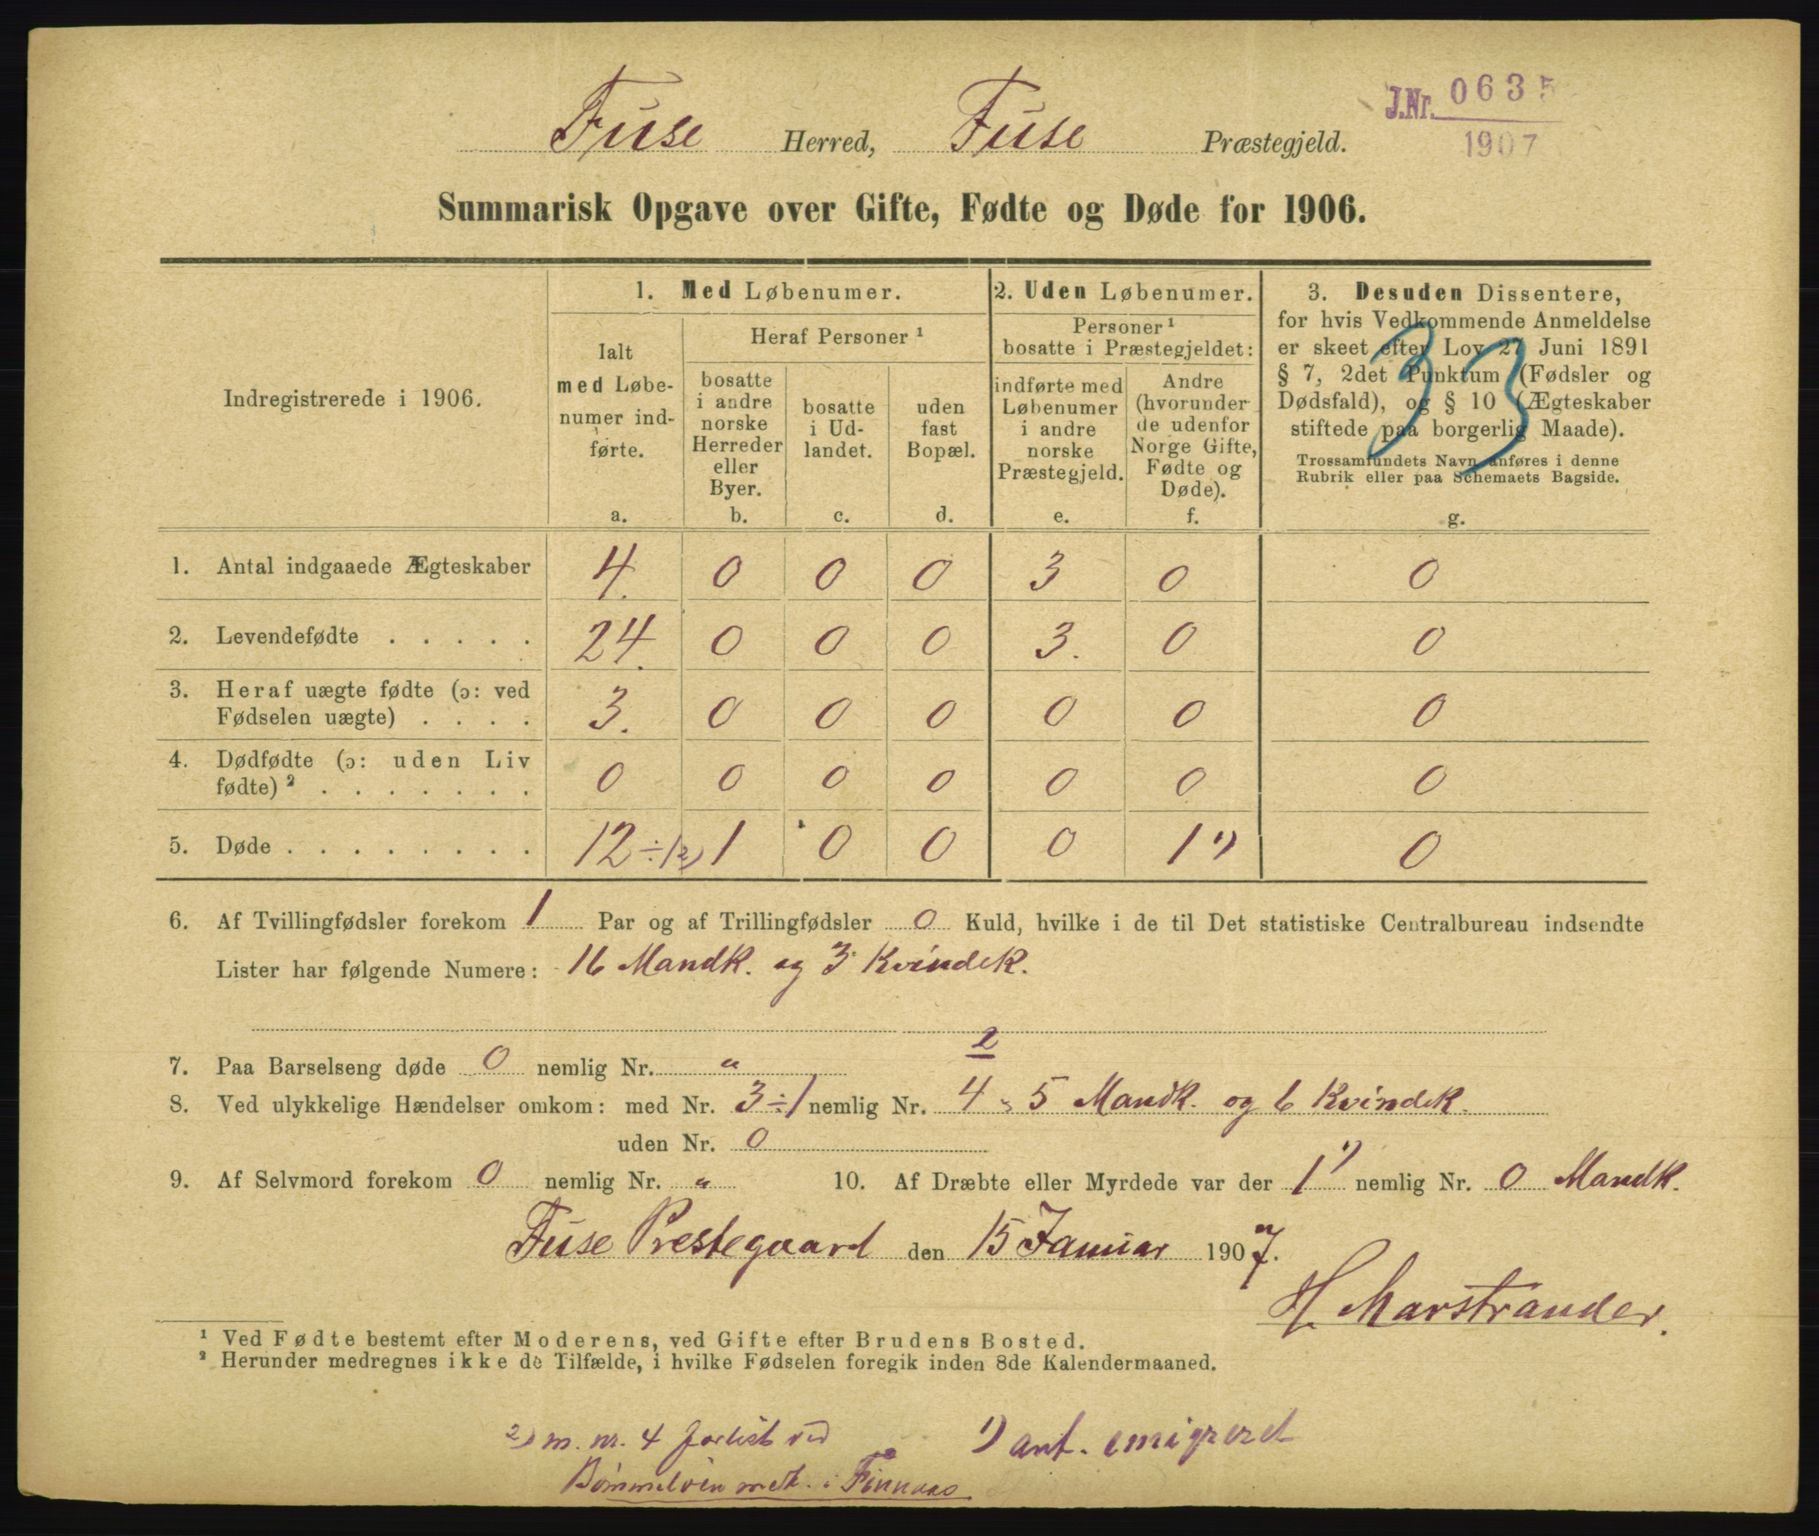 Fuse Herred, Fuse Præstegjeld.
J.Nr. 0635
1907
Summarisk Opgave over Gifte, Fødte og Døde for 1906.
Indregistrerede i 1906.
1. Med Løbenumer.
Ialt
med Løbe-
numer ind-
førte.
a.
Heraf Personer ¹
bosatte
i andre
norske
Herreder
eller
Byer.
b.
bosatte
i Ud-
landet.
c.
uden
fast
Bopæl.
d.
2. Uden Løbenumer.
Personer ¹
bosatte i Præstegjeldet:
indførte med
Løbenumer
i andre
norske
Præstegjeld.
e.
Andre
(hvorunder
de udenfor
Norge Gifte,
Fødte og
Døde).
f.
3. Desuden Dissentere,
for hvis Vedkommende Anmeldelse
er skeet efter Lov 27 Juni 1891
§ 7, 2det Punktum (Fødsler og
Dødsfald), og § 10 (Ægteskaber
stiftede paa borgerlig Maade).
Trossamfundets Navn anføres i denne
Rubrik eller paa Schemaets Bagside.
g.
33
1. Antal indgaaede Ægteskaber 4. 0 0 0 3 0 0
2. Levendefødte . . . . . 24. 0 0 0 3. 0 0
3. Heraf uægte fødte (ɔ: ved
Fødselen uægte) . . . . 3. 0 0 0 0 0 0
4. Dødfødte (ɔ: uden Liv
fødte) ² . . . . . . . 0 0 0 0 0 0 0
5. Døde . . . . . . . . 12 ÷1 2) 1 0 0 0 1 1) 0
6. Af Tvillingfødsler forekom 1 Par og af Trillingfødsler 0 Kuld, hvilke i de til Det statistiske Centralbureau indsendte
Lister har følgende Numere: 16 Mandk. og 3 Kvindek.
7. Paa Barselseng døde 0 nemlig Nr. "
2
8. Ved ulykkelige Hændelser omkom: med Nr. 3 ÷1 nemlig Nr. 4, 5 Mandk. og 6 Kvindek.
uden Nr. 0
9. Af Selvmord forekom 0 nemlig Nr. " 10. Af Dræbte eller Myrdede var der 1 1) nemlig Nr. 0 Mandk.
Fuse Prestegaard den 15 Januar 1907.
H. Marstrander.
¹ Ved Fødte bestemt efter Moderens, ved Gifte efter Brudens Bosted.
² Herunder medregnes ikke de Tilfælde, i hvilke Fødselen foregik inden 8de Kalendermaaned.
2) m. nr. 4 forlist ved
Bømmeløen medt. i Finnaas
1) ant. emigreret